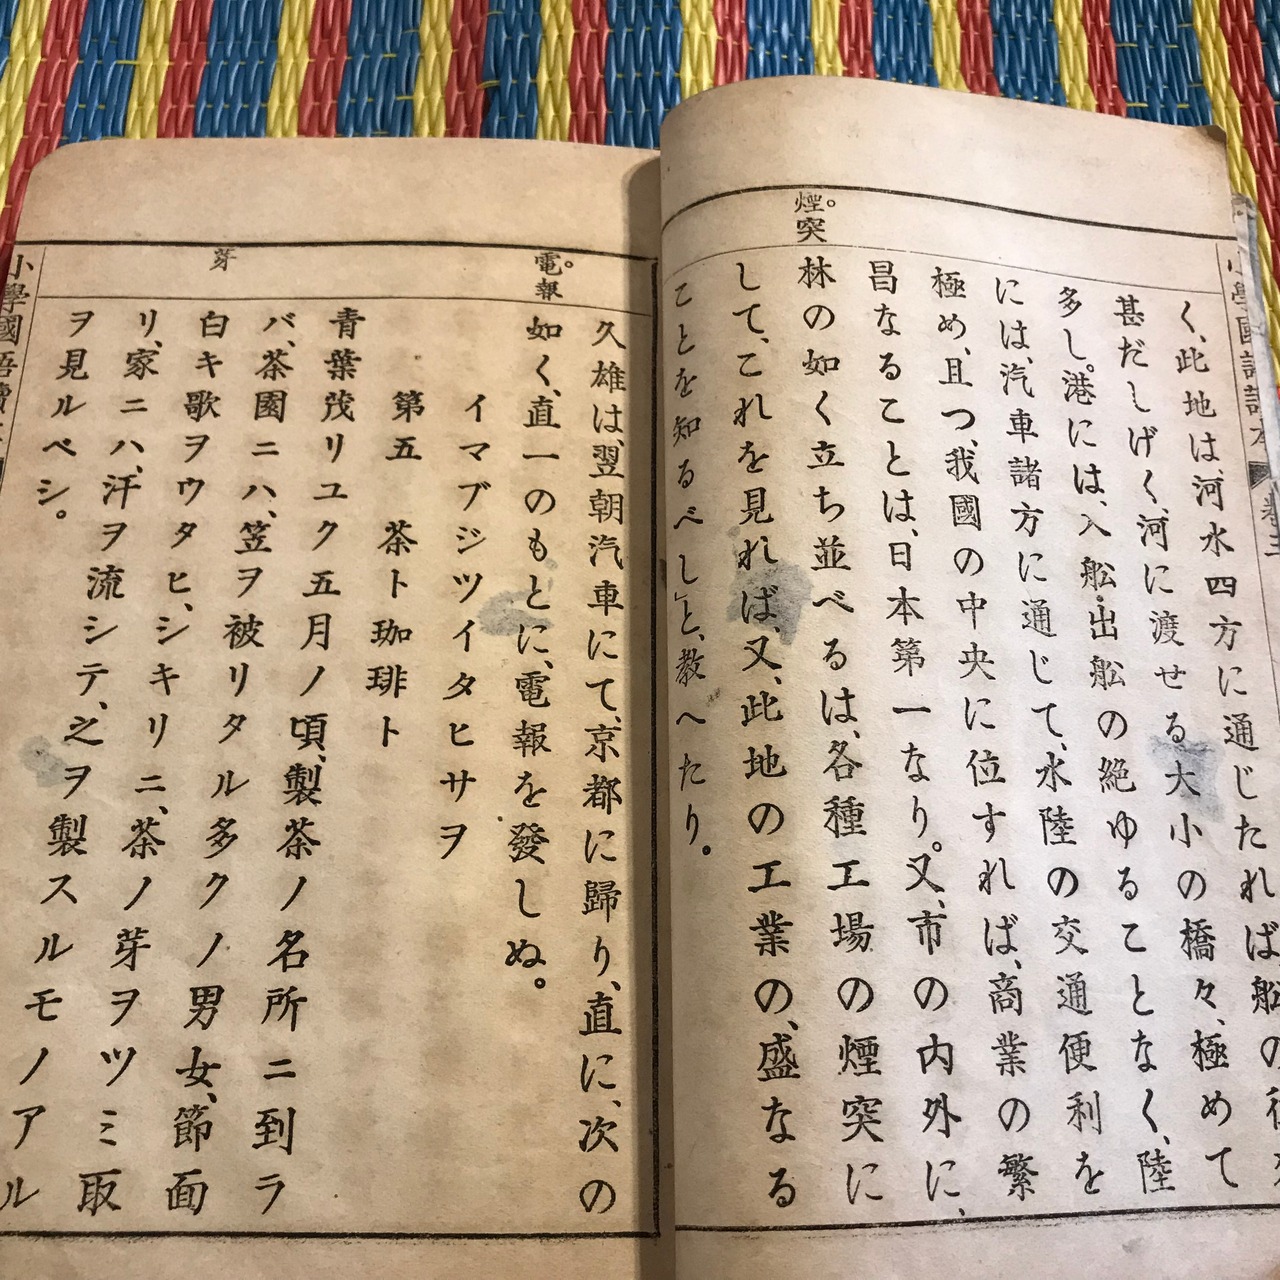 小學國語讀本
く、此地は、河水四方に通じたれば船の
甚だしげく、河に渡せる大小の橋々、極めて
多し。港には、入船・出船の絶ゆることなく、陸
には、汽車諸方に通じて、水陸の交通便利を
極め、且つ、我國の中央に位すれば、商業の繁
昌なることは、日本第一なり。又、市の内外に、
煙突
林の如く立ち並べるは、各種工場の煙突に
して、これを見れば、又、此地の工業の、盛なる
ことを知るべし」と、教へたり。
久雄は、翌朝汽車にて、京都に歸り、直に、次の
電報
如く、直一のもとに、電報を發しぬ。
イマブジツイタヒサヲ
第五 茶ト珈琲ト
青葉茂リユク五月ノ頃、製茶ノ名所ニ到ラ
バ、茶園ニハ、笠ヲ被リタル多クノ男女、節面
芽
白キ歌ヲウタヒ、シキリニ、茶ノ芽ヲツミ取
リ、家ニハ、汗ヲ流シテ、之ヲ製スルモノアル
ヲ見ルベシ。
小學國語讀